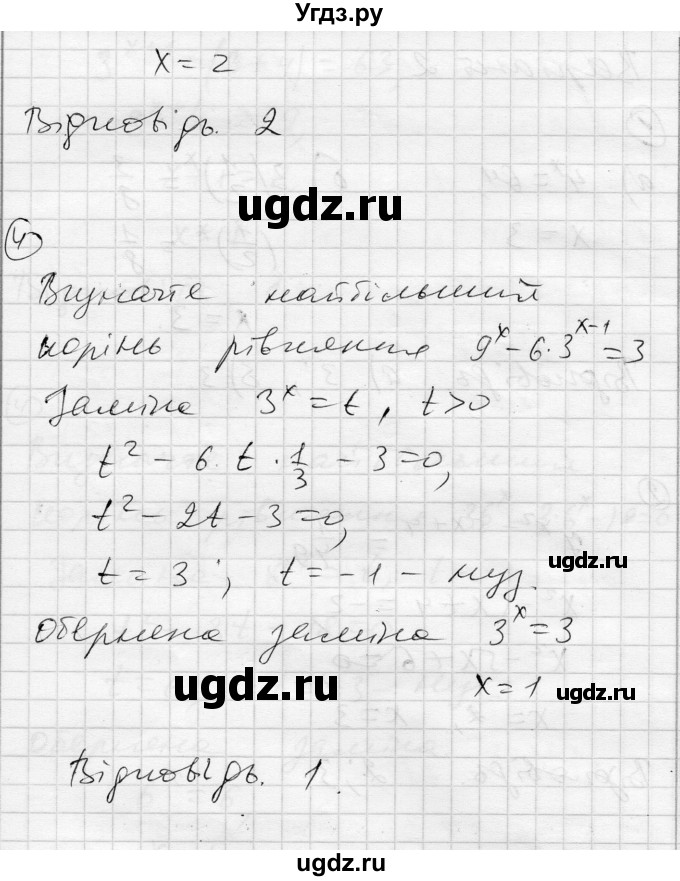 Угдз.ру
x = 2
Відповідь. 2
ugdz.ru
4
Визначте найбільший
корінь рівняння 9^x − 6·3^{x−1} = 3
Заміна 3^x = t, t>0
t² − 6·t·1/3 − 3 = 0,
t² − 2t − 3 = 0,
ugdz.ru
t = 3; t = −1 −
Обернена заміна 3^x = 3
ugdz.ru
x = 1
ugdz.ru
Відповідь. 1.
ugdz.ru